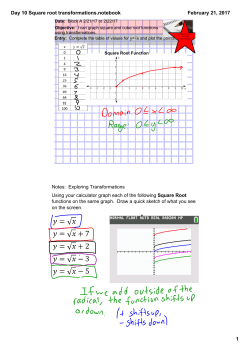 Day 10 Square root transformations.notebook
February 21, 2017
Date: Block A 2/21/17
Objective: I can graph square and cube root functions using transformations.
Entry: Complete the table of values for y=√x and plot the points
x y=√x
0 0
1 1
4 2
9 3
16 4
25 5
36 6
49 7
64 8
81 9
100 10
Square Root Function
Domain: 0≤x<∞
Range: 0≤y<∞
Notes: Exploring Transformations
Using your calculator graph each of the following Square Root
functions on the same graph. Draw a quick sketch of what you see
on the screen.
y = √x
y = √x + 7
y = √x + 2
y = √x − 3
y = √x − 5
NORMAL FLOAT AUTO REAL RADIAN MP
If we add outside of the
radical, the function shifts up
or down. (+ shifts up,
- shifts down)
1